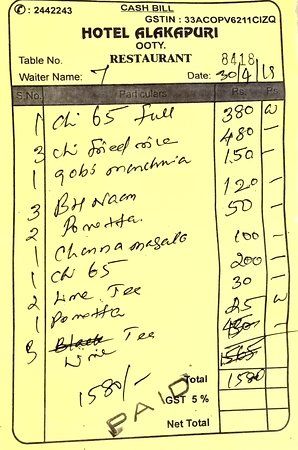 CASH BILL
✆ : 2442243 GSTIN : 33ACOPV6211CIZQ
HOTEL ALAKAPURI
OOTY.
RESTAURANT
Table No. 8418
Waiter Name: 7 Date: 30/4/19
S.No. Particulars Rs. P.
1 Ch 65 Full 380
3 Ch fried rice 480 -
1 gobi manchuria 150 -
3 BH Naan 120 -
2 Porotta 50 -
1 Channa masala 100 -
1 Ch 65 200 -
2 Lime Tee 30 -
1 Porotta 25
3 Black Tee
Lime
1580/- Total 1580
PAID
GST 5 %
Net Total